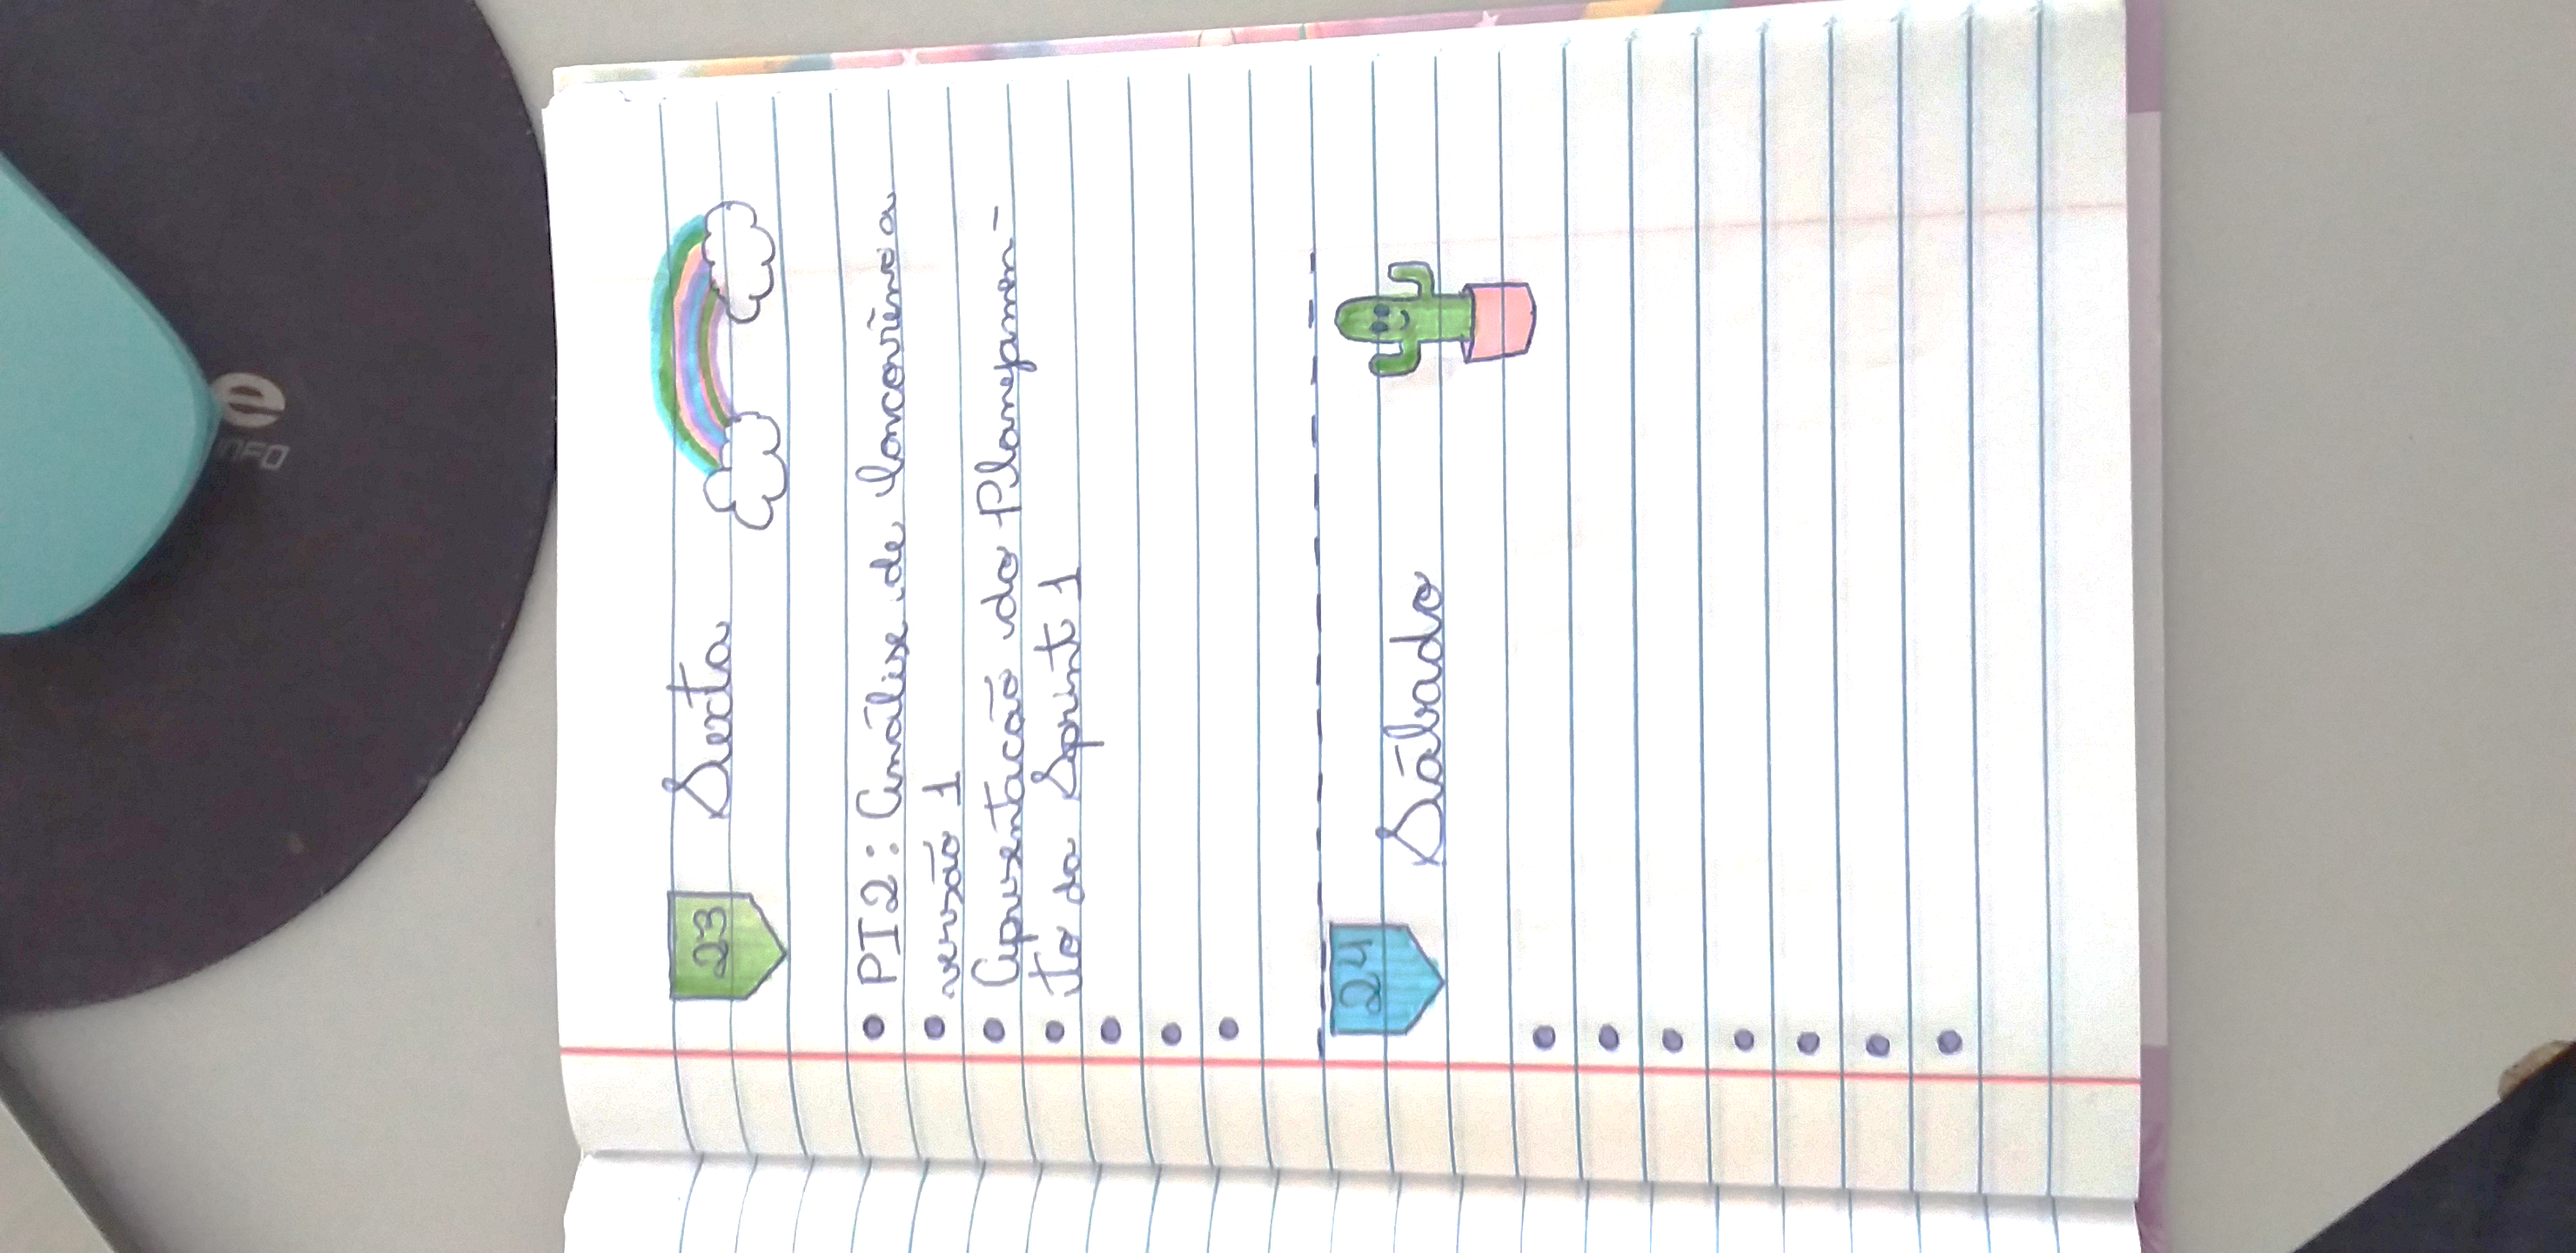 23 Sexta
• PI2: Análise de concorrência
• versão 1
• Apresentação do Planejamen-
• to da Sprint 1
•
•
•
24 Sábado
•
•
•
•
•
•
•
e
INFO